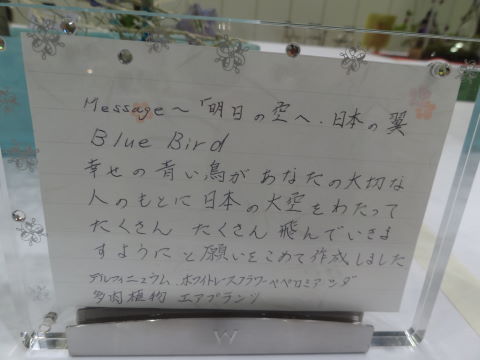 Message~「明日の空へ、日本の翼
Blue Bird
幸せの青い鳥があなたの大切な
人のもとに日本の大空をわたって
たくさん たくさん 飛んでいきま
すようにと願いをこめて作成しました
デルフィニュウム、ホワイトレースフラワー、ペペロミア、シダ
多肉植物 エアプランツ
W